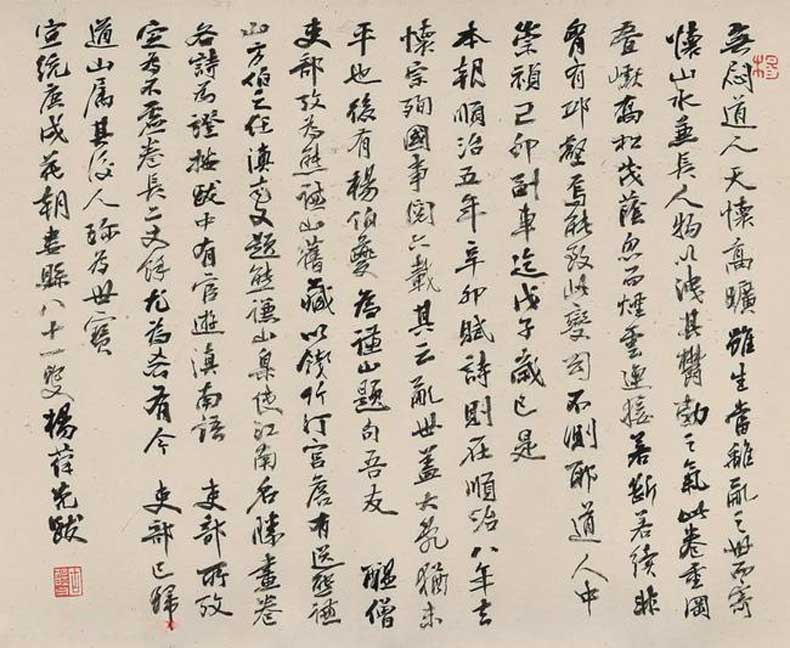 無悶道人天懷高曠雖生當離亂之世而寄
懷山水兼長人物以洩其鬱勃之氣此卷重岡
疊巘喬松茂蔭忽而煙雲連蜷若斷若續非
胷有邱壑焉能致此變幻不測耶道人中
崇禎己卯副車迄戊子歲已是
本朝順治五年辛卯賦詩則在順治八年去
懷宗殉國事閱六載其云亂世蓋大亂猶未
平也後有楊伯夔為謹山題句吾友 醖僧
吏部攷為熊謙山舊藏以錢竹汀宮詹有送熊謙
山方伯之任滇南又題熊謙山臬使江南名勝畫卷
各詩為證按跋中有官遊滇南語 吏部所攷
定為不虛卷長二丈餘尤為希有今 吏部已歸
道山屬其後人珎為世寶
宣統庚戌花朝婁縣八十一叟楊葆光跋